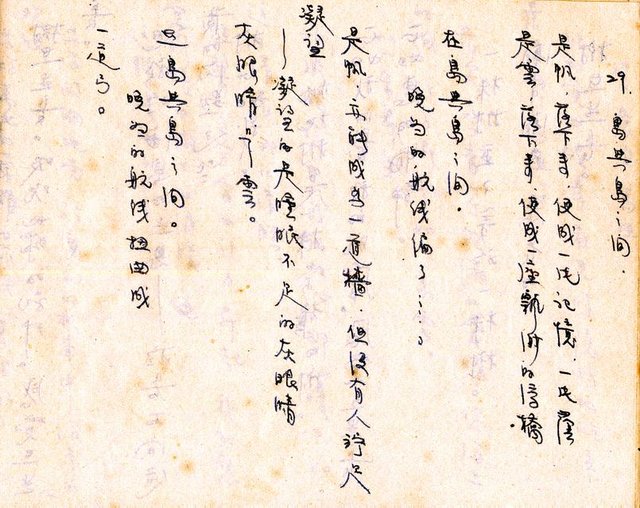 29. 島與島之間.
是帆,落下来,便成一片記憶,一片落
是雲,落下来,便成一座飄浮的浮橋.
在島與島之間.
晚的航线偏了……。
是帆,亦成一道牆.但沒有人停足
凝望
凝望的是睡眠不足的灰眼睛
灰眼睛,雲。
在島與島之間。
晚的航线扭曲成
一道弓。